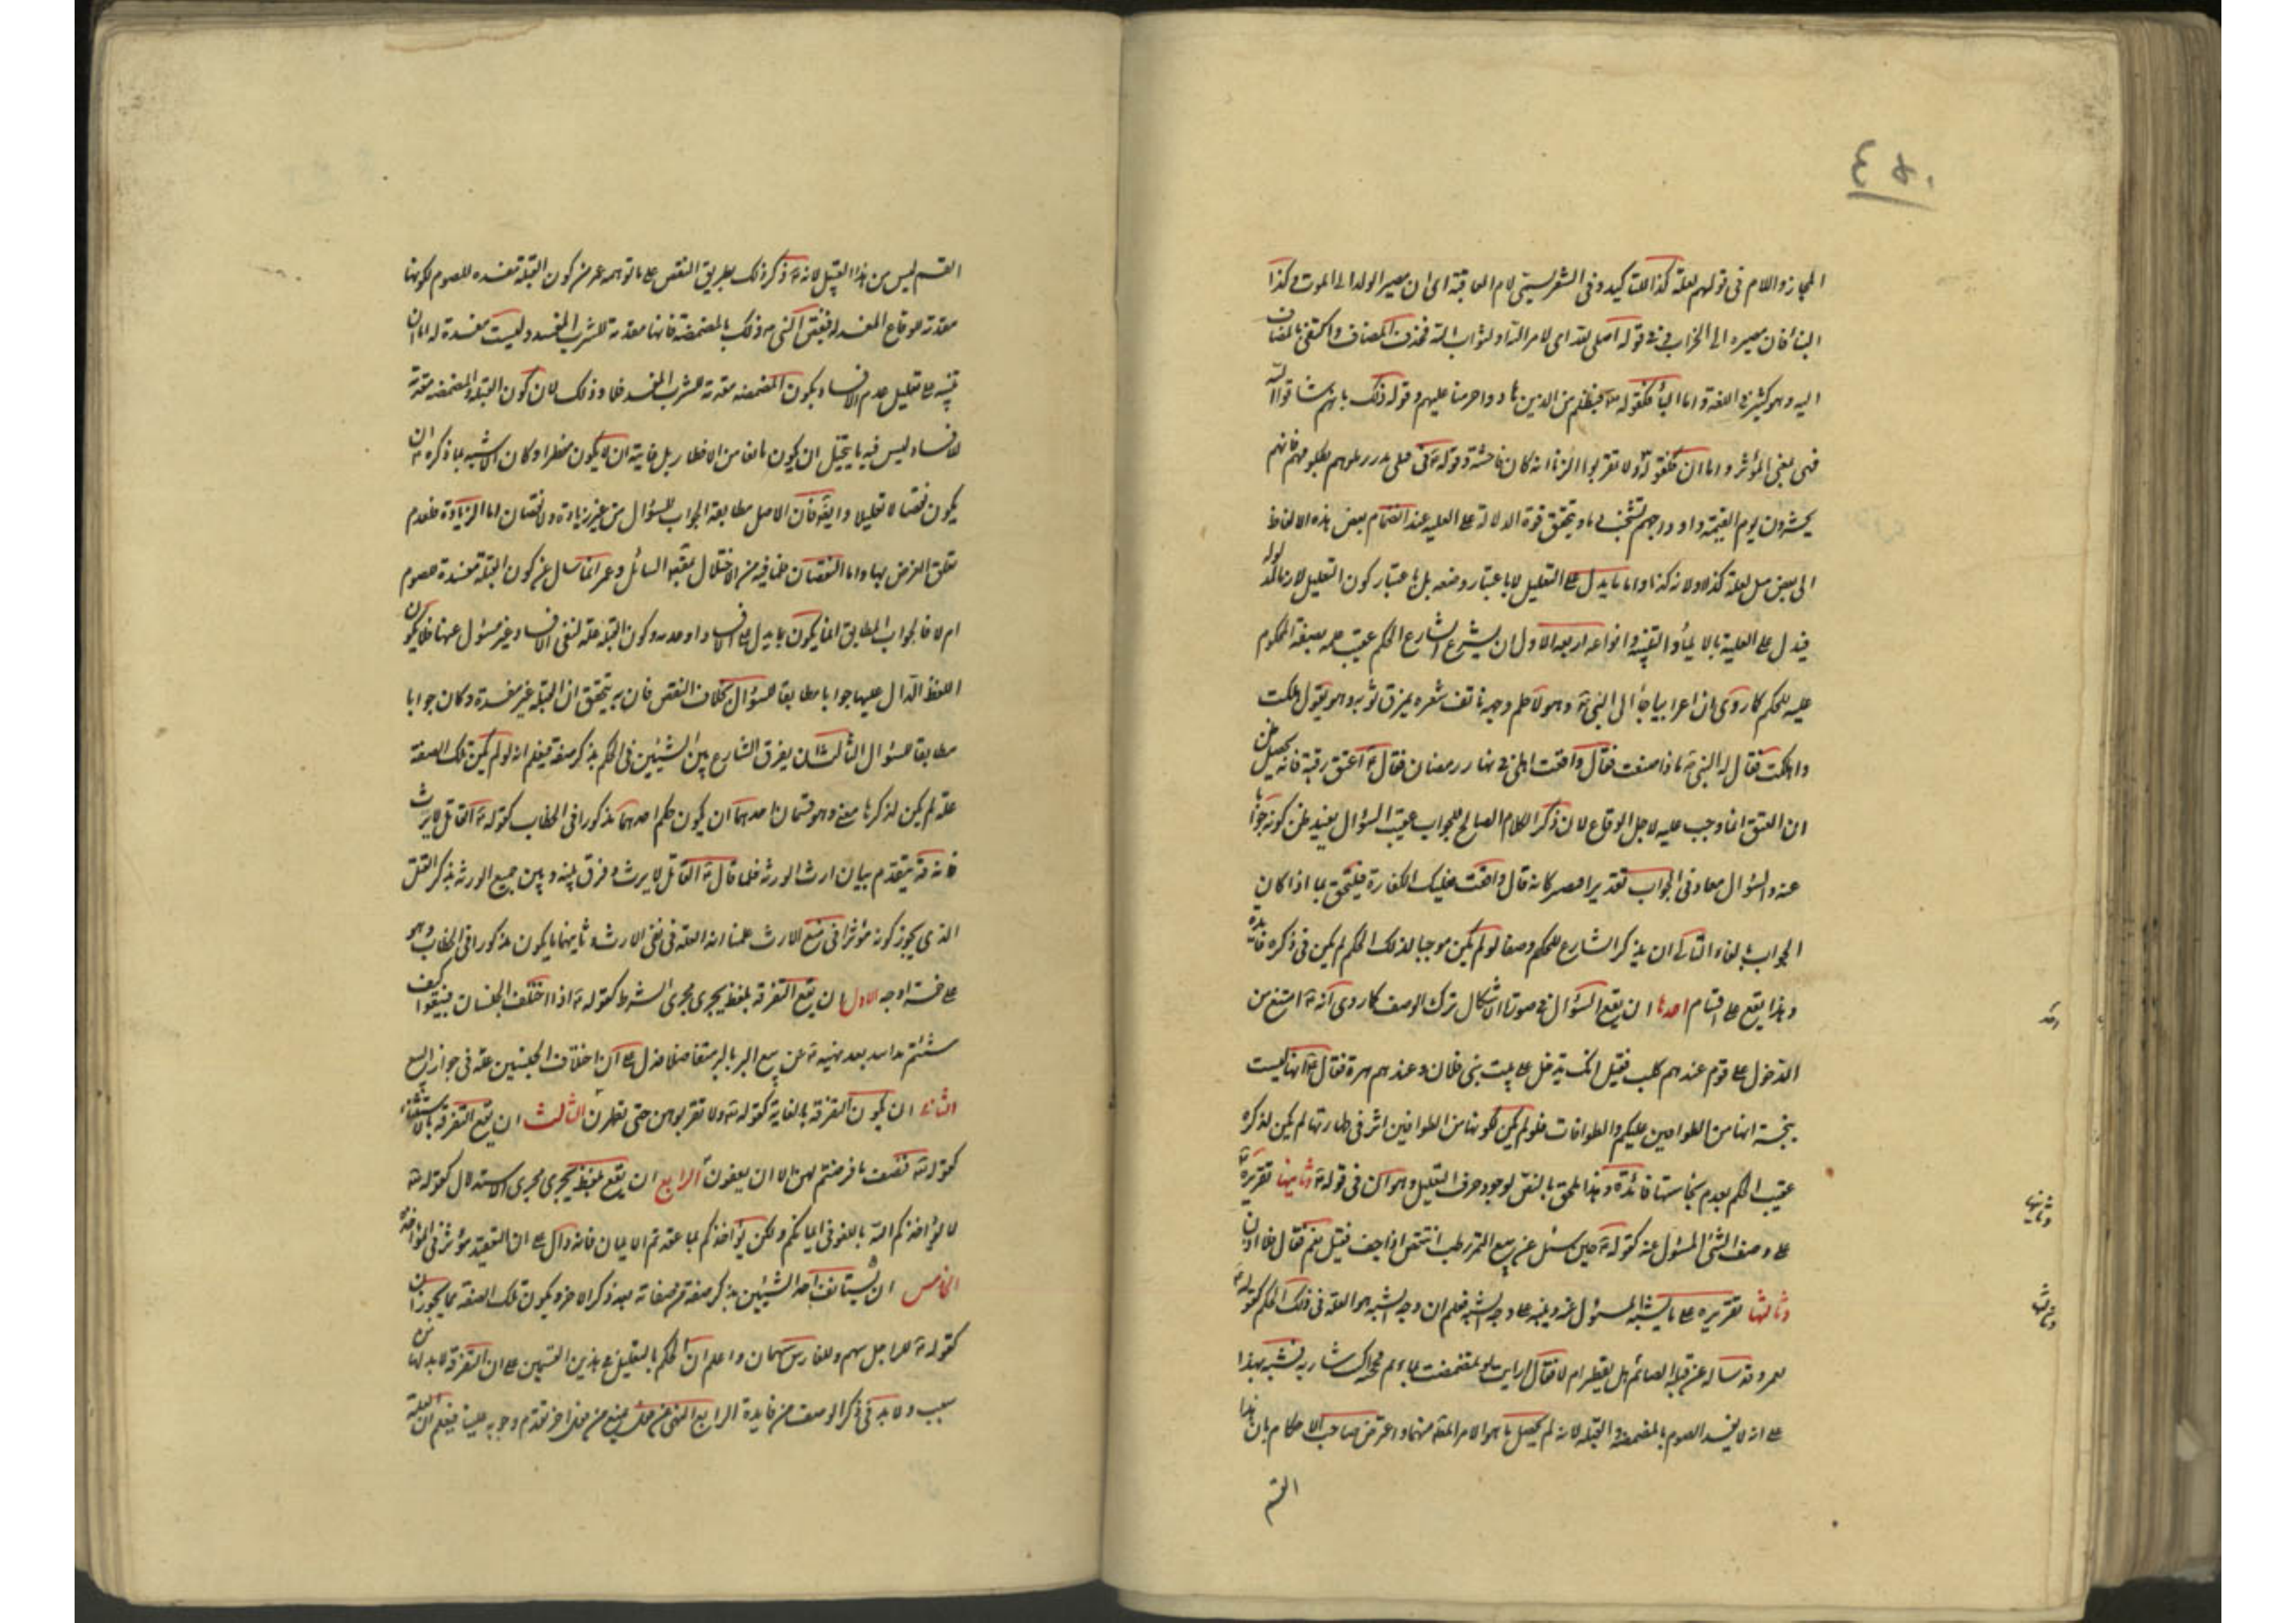 ٤٥٠
المجاز واللام فى قولهم لعلة كذا للتاكيد وفى الشعر ليستى لام العاقبة اى ان مصير الولد الى الموت وكذا
البناء فان مصيره الى الخراب وفى قوله اصلى لله اى لامر الله او لثواب الله فحذف المضاف واكتفى بالمضاف
اليه وهو كثير فى اللغة واما الباء فكقوله تع فبظلم من الذين هادوا حرمنا عليهم وقوله ذلك بانهم شاقوا الله
فهى بمعنى المؤثر واما ان فكقوله تع ولا تقربوا الزنا انه كان فاحشة وقوله ع فى قتلى بدر زملوهم بكلومهم فانهم
يحشرون يوم القيمة واوداجهم تشخب دما ويتحقق قوة الدلالة على العلية عند انضمام بعض هذه الالفاظ
الى بعض مثل لعلة كذا ولانه كذا واما ما يدل على التعليل لا باعتبار وضعه بل باعتبار كون التعليل لازما لمدلوله
فيدل على العلية بالايماء والتنبيه وانواعه اربعة الاول ان يشرع الشارع الحكم عقيب علمه بصفة المحكوم
عليه للحكم كما روى ان اعرابيا جاء الى النبى ع وهو لاطم وجهه ناتف شعره يمزق ثوبه وهو يقول هلكت
واهلكت فقال له النبى ع ماذا صنعت فقال واقعت اهلى فى نهار رمضان فقال ع اعتق رقبة فانه يحصل ظن
ان العتق انما وجب عليه لاجل الوقاع لان ذكر الكلام الصالح للجواب عقيب السؤال يفيد ظن كونه جوابا
عنه والسؤال معاد فى الجواب تقديرا فصر كانه قال واقعت فعليك الكفارة فيلتحق بما اذا كان
الجواب بالفاء الثانى ان يذكر الشارع للحكم وصفا لو لم يكن موجبا لذلك الحكم لم يكن فى ذكره فائدة
وهذا يقع على اقسام احدها ان يقع السؤال فى صورة الاشكال بترك الوصف كما روى انه ع امتنع من
الدخول على قوم عندهم كلب فقيل انك تدخل على بيت بنى فلان وعندهم هرة فقال ع انها ليست
بنجسة انها من الطوافين عليكم والطوافات فلو لم يكن لكونها من الطوافين اثر فى طهارتها لم يكن لذكره
عقيب الحكم بعدم نجاستها فائدة وهذا يلحق بالنص لوجود حرف التعليل وهو ان فى قوله ع وثانيها تقريره ع
على وصف الشئ المسئول عنه كقوله ع حين سئل عن بيع التمر بالرطب اينقص اذا جف فقيل نعم فقال فلا اذن
وثالثها تقريره على ما يشبه المسؤل عنه وينبه على وجه الشبه فيعلم ان وجه الشبه هو العلة فى ذلك الحكم كقوله ع
لعمر وقد ساله عن قبلة الصائم هل يفطر ام لا فقال ارايت لو تمضمضت بماء ثم مججته اكنت شاربه فنبه بهذا
على انه لا يفسد الصوم بالمضمضة والقبلة لانه لم يحصل ما هو الامر المقصود منهما واعترض صاحب الاحكام بان هذا
القسم
احد
وثانيها
وثالثها
القسم ليس من هذا القبيل لانه ع ذكر ذلك بطريق النقض على ما توهمه عمر من كون القبلة مفسدة للصوم لكونها
مقدمة للوقاع المفسد له فنقض النبى ع ذلك بالمضمضة فانها مقدمة للشرب المفسد وليست مفسدة له اما ان
تنبيه على تعليل عدم الافساد بكون المضمضة مقدمة للشرب المفسد فلا وذلك لان كون القبلة والمضمضة مقدمة
للافساد ليس فيه ما يتخيل ان يكون مانعا من الافطار بل غايته ان لا يكون مفطرا وكان الاشبه بما ذكره ع ان
يكون نقضا لا تعليلا وايض فان الاصل مطابقة الجواب للسؤال من غير زيادة ولا نقصان اما الزيادة فلعدم
تعلق الغرض بها واما النقصان فلما فيه من الاختلال بمقصود السائل وعمر انما سال عن كون القبلة مفسدة للصوم
ام لا فالجواب المطابق انما يكون بما يدل على الافساد او عدمه وكون القبلة علة لنفى الافساد غير مسؤل عنها فلا يكون
اللفظ الدال عليها جوابا مطابقا للسؤال بخلاف النقض فان به يتحقق ان القبلة غير مفسدة وكان جوابا
مطابقا للسؤال الثالث ان يفرق الشارع بين الشيئين فى الحكم بذكر صفة فيعلم انه لو لم يكن تلك الصفة
علة لم يكن لذكرها معنى وهو قسمان احدهما ان يكون حكم احدهما مذكورا فى الخطاب كقوله ع القاتل لا يرث
فانه قد تقدم بيان ارث الورثة فلما قال ع القاتل لا يرث وفرق بينه وبين جميع الورثة بذكر القتل
الذى يجوز كونه مؤثرا فى منع الارث علمنا انه العلة فى نفى الارث وثانيهما ما يكون مذكورا فى الخطاب وهو
على خمسة اوجه الاول ان يقع التفرقة بلفظ يجرى مجرى الشرط كقوله ع اذا اختلف الجنسان فبيعوا كيف
شئتم يدا بيد بعد نهيه ع عن بيع البر بالبر متفاضلا فدل على ان اختلاف الجنسين علة فى جواز البيع
الثانى ان يكون التفرقة بالغاية كقوله تع ولا تقربوهن حتى يطهرن الثالث ان يقع التفرقة بالاستثناء
كقوله تع فنصف ما فرضتم لهن الا ان يعفون الرابع ان يقع بلفظ يجرى مجرى الاستدراك كقوله تع
لا يؤاخذكم الله باللغو فى ايمانكم ولكن يؤاخذكم بما عقدتم الايمان فانه دال على ان التعقيد مؤثر فى المؤاخذة
الخامس ان يستانف احد الشيئين بذكر صفة من صفاته بعد ذكر الاخر ويكون تلك الصفة مما يجوز ان
كقوله ع للراجل سهم وللفارس سهمان واعلم ان الحكم بالتعليل فى هذين القسمين على ان التفرقة لا بد لها من
سبب ولا بد فى ذكر الوصف من فايدة الرابع النهى عن فعل يمنع من فعل اخر تقدم وجوبه علينا فيعلم ان العلة